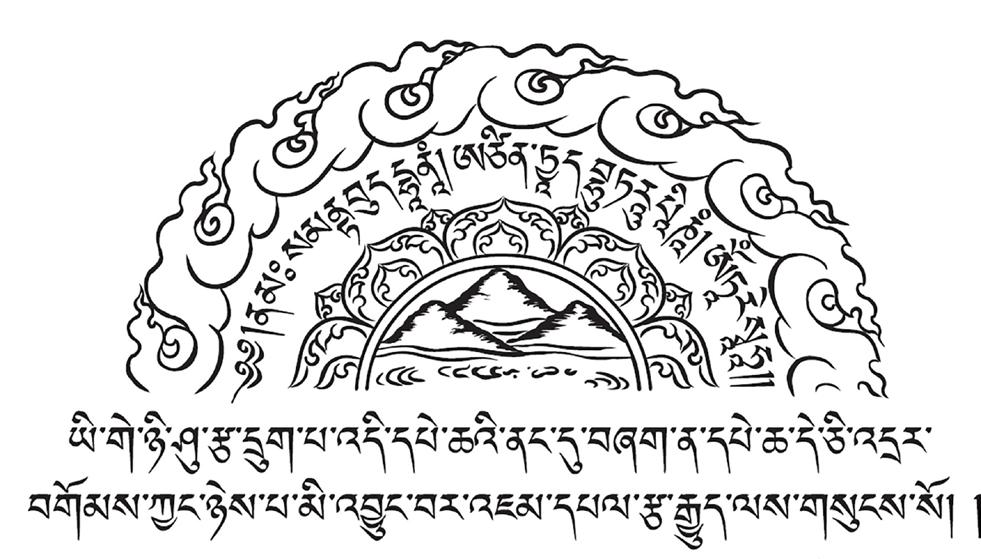 ༄༅། །ན་མཿ ས་མནྟ་བུདྡྷཱནཱཾ། 
ཡི་གེ་ཉི་ཤུ་རྩ་དྲུག་པ་འདི་དཔེ་ཆའི་ནང་དུ་བཞག་ན་དཔེ་ཆ་དེ་ཅི་འདྲར་
བགོམས་ཀྱང་ཉེས་པ་མི་འབྱུང་བར་འཇམ་དཔལ་རྩ་རྒྱུད་ལས་གསུངས་སོ། །